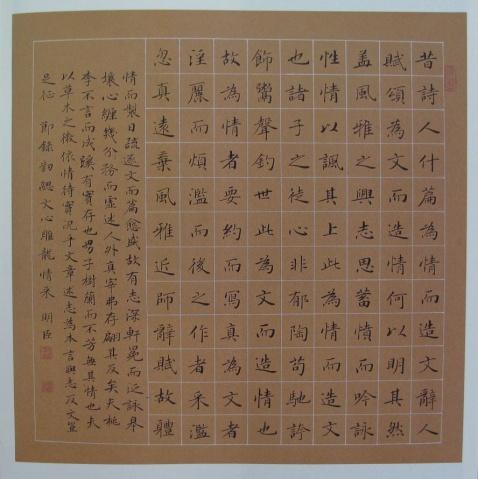 昔詩人什篇為情而造文辭人
賦頌為文而造情何以明其然
盖風雅之興志思蓄憤而吟詠
性情以諷其上此為情而造文
也諸子之徒心非郁陶苟馳誇
飾鬻聲釣世此為文而造情也
故為情者要約而寫真為文者
淫麗而煩濫而後之作者采濫
忽真遠棄風雅近師辭賦故體
情而製日疏逐文而篇愈盛故有志深軒冕而泛詠皋
壤心纏幾務而虛述人外真宰弗存翩其反矣夫桃
李不言而成蹊有實存也男子樹蘭而不芳無其情也夫
以草木之微依情待實況乎文章述志為本言與志反文豈
足征 節錄劉勰文心雕龍情采 明臣